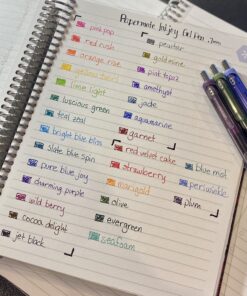 Papermate Inkjoy Gel Pen .7mm
pink pop
red rush
orange rise
yellow burst
lime light
luscious green
teal zeal
bright blue bliss
slate blue spin
pure blue joy
charming purple
wild berry
cocoa delight
jet black
peashir
gold mine
pink topaz
amethyst
jade
aquamarine
garnet
red velvet cake
strawberry
marigold
olive
evergreen
seafoam
blue moon
periwinkle
plum